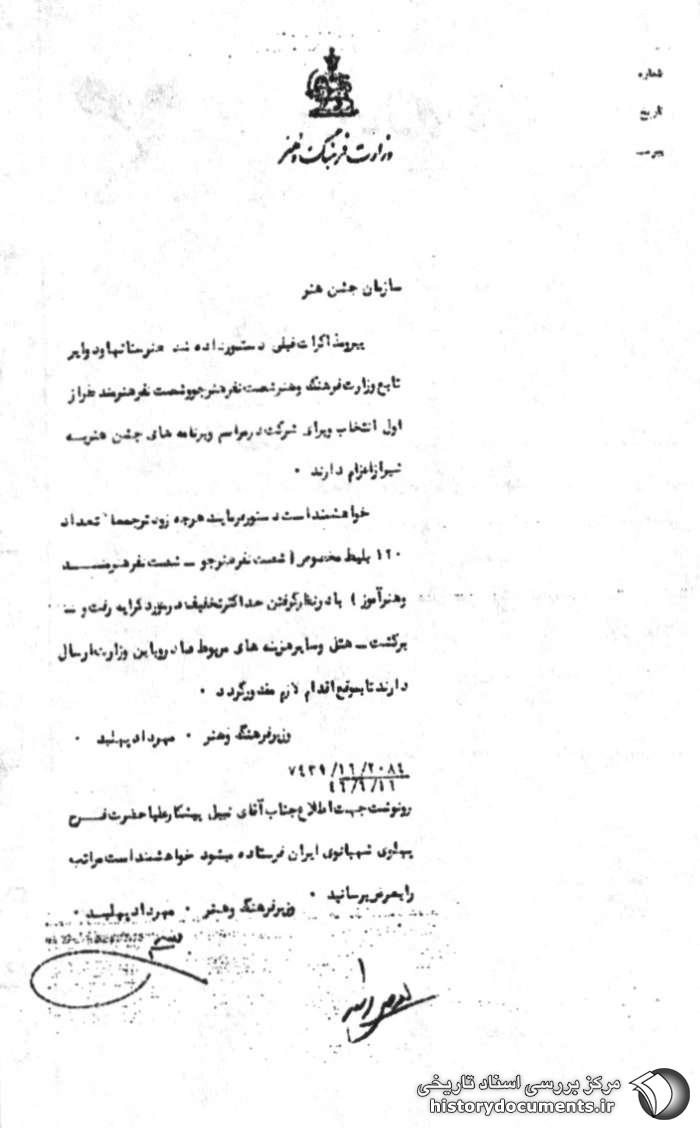 شماره
تاریخ
پیوست
وزارت فرهنگ و هنر
سازمان جشن هنر
پیرو مذاکرات قبلی دستور داده شد هنرستانها و دوایر
تابع وزارت فرهنگ و هنر شصت نفر هنرجو و شصت نفر هنرمند طراز
اول انتخاب و برای شرکت در مراسم و برنامه های جشن هنر به
شیراز اعزام دارند ۰
خواهشمند است دستور فرمایند هرچه زودتر جمعا" تعداد
۱۲۰ بلیط مخصوص ( شصت نفر هنرجو ــ شصت نفر هنرمنـــد
و هنرآموز ) با در نظر گرفتن حداکثر تخفیف در مورد کرایه رفت و ــ
برگشت ــ هتل و سایر هزینه های مربوط صادر و باین وزارت ارسال
دارند تا بموقع اقدام لازم مقدور گردد ۰
وزیر فرهنگ و هنر ۰ مهرداد پهلبد ۰
رونوشت جهت اطلاع جناب آقای نبیل پیشکار علیاحضرت فـــرح
پهلوی شهبانوی ایران فرستاده میشود خواهشمند است مراتب
را بعرض برسانید ۰ وزیر فرهنگ و هنر ۰ مهرداد پهلبـد ۰
مرکز بررسی اسناد تاریخی
historydocuments.ir